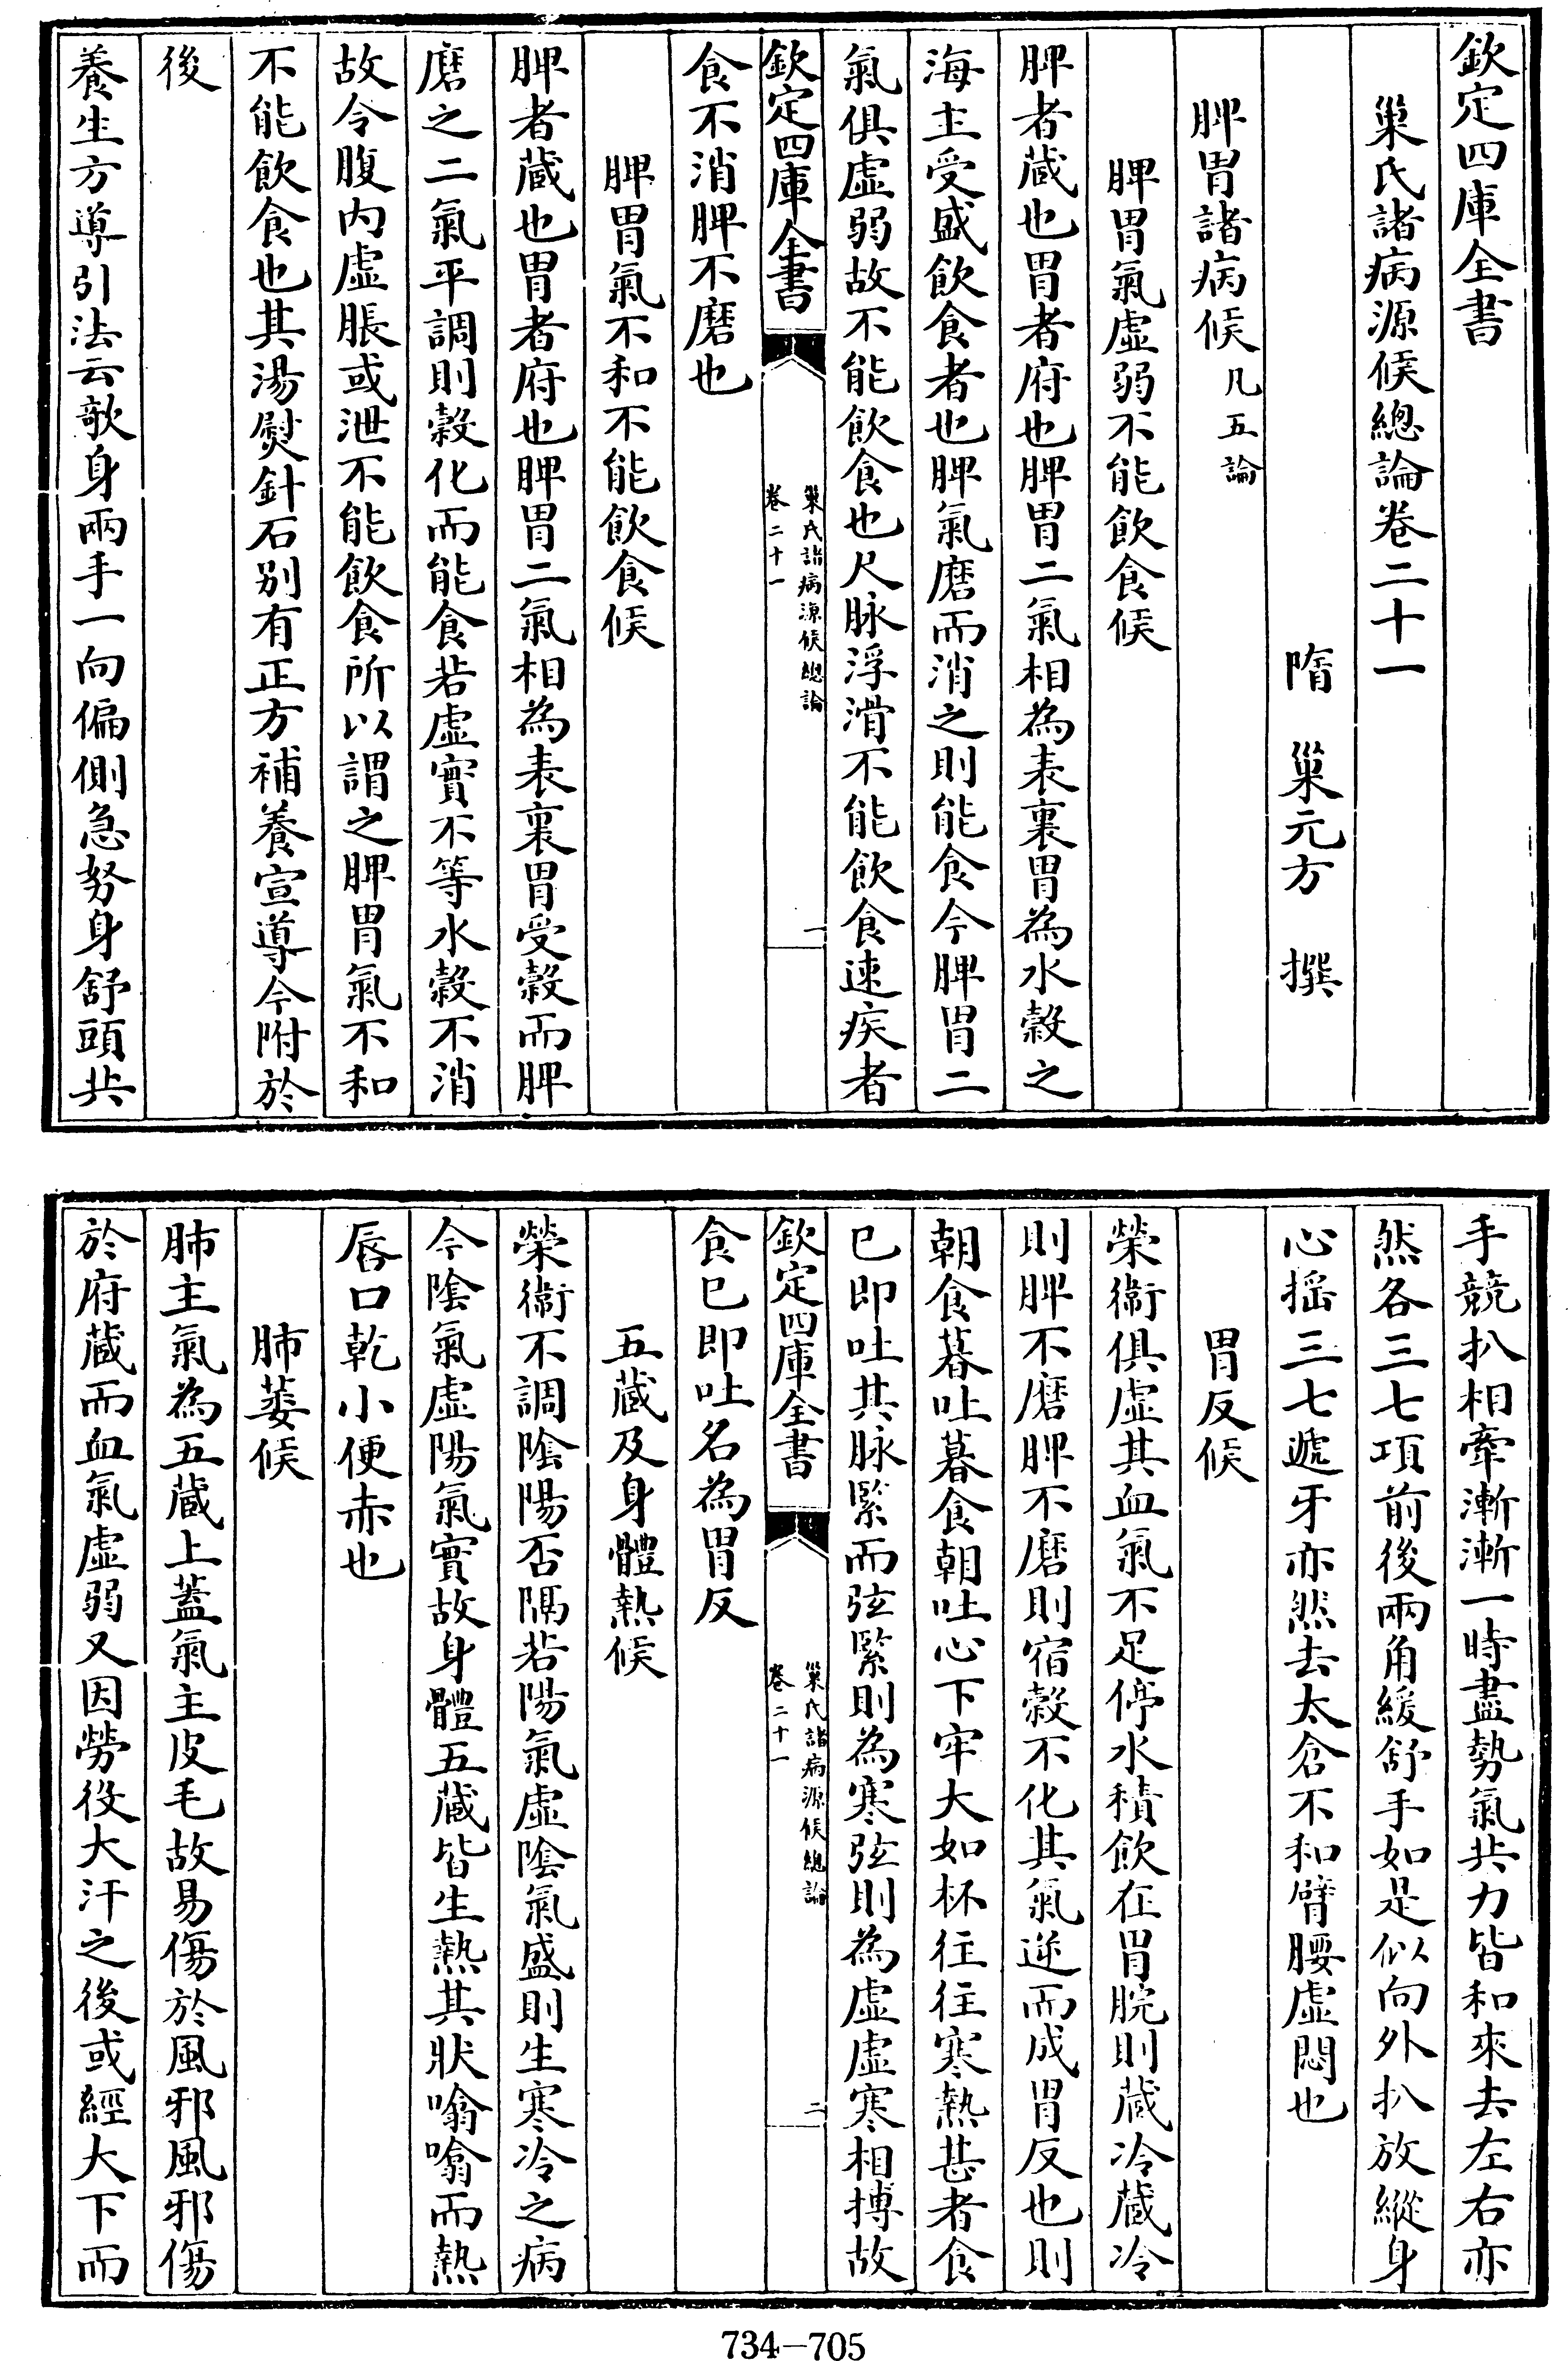 欽定四庫全書
巢氏諸病源候總論卷二十一
隋 巢元方 撰
脾胃諸病候凡五論
脾胃氣虛弱不能飲食候
脾者蔵也胃者府也脾胃二氣相為表裏胃為水穀之
海主受盛飲食者也脾氣磨而消之則能食今脾胃二
氣俱虛弱故不能飲食也尺脉浮滑不能飲食速疾者
欽定四庫全書
巢氏諸病源候總論
卷二十一
一
食不消脾不磨也
脾胃氣不和不能飲食候
脾者蔵也胃者府也脾胃二氣相為表裏胃受穀而脾
磨之二氣平調則穀化而能食若虛實不等水穀不消
故令腹内虛脹或泄不能飲食所以謂之脾胃氣不和
不能飲食也其湯熨針石别有正方補養宣導今附於
後
養生方導引法云欹身兩手一向偏側急努身舒頭共
手競扒相牽漸漸一時盡勢氣共力皆和來去左右亦
然各三七項前後兩角緩舒手如是似向外扒放縱身
心摇三七遞牙亦然去太倉不和臂腰虛悶也
胃反候
榮衞俱虛其血氣不足停水積飲在胃脘則蔵冷蔵冷
則脾不磨脾不磨則宿穀不化其氣逆而成胃反也則
朝食暮吐暮食朝吐心下牢大如杯往往寒熱甚者食
已即吐其脉緊而弦緊則為寒弦則為虛虛寒相搏故
欽定四庫全書
巢氏諸病源候總論
卷二十一
二
食已即吐名為胃反
五蔵及身體熱候
榮衞不調隂陽否隔若陽氣虛隂氣盛則生寒冷之病
今隂氣虛陽氣實故身體五蔵皆生熱其狀噏噏而熱
唇口乾小便赤也
肺萎候
肺主氣為五蔵上蓋氣主皮毛故易傷於風邪風邪傷
於府蔵而血氣虛弱又因勞役大汗之後或經大下而
734—705